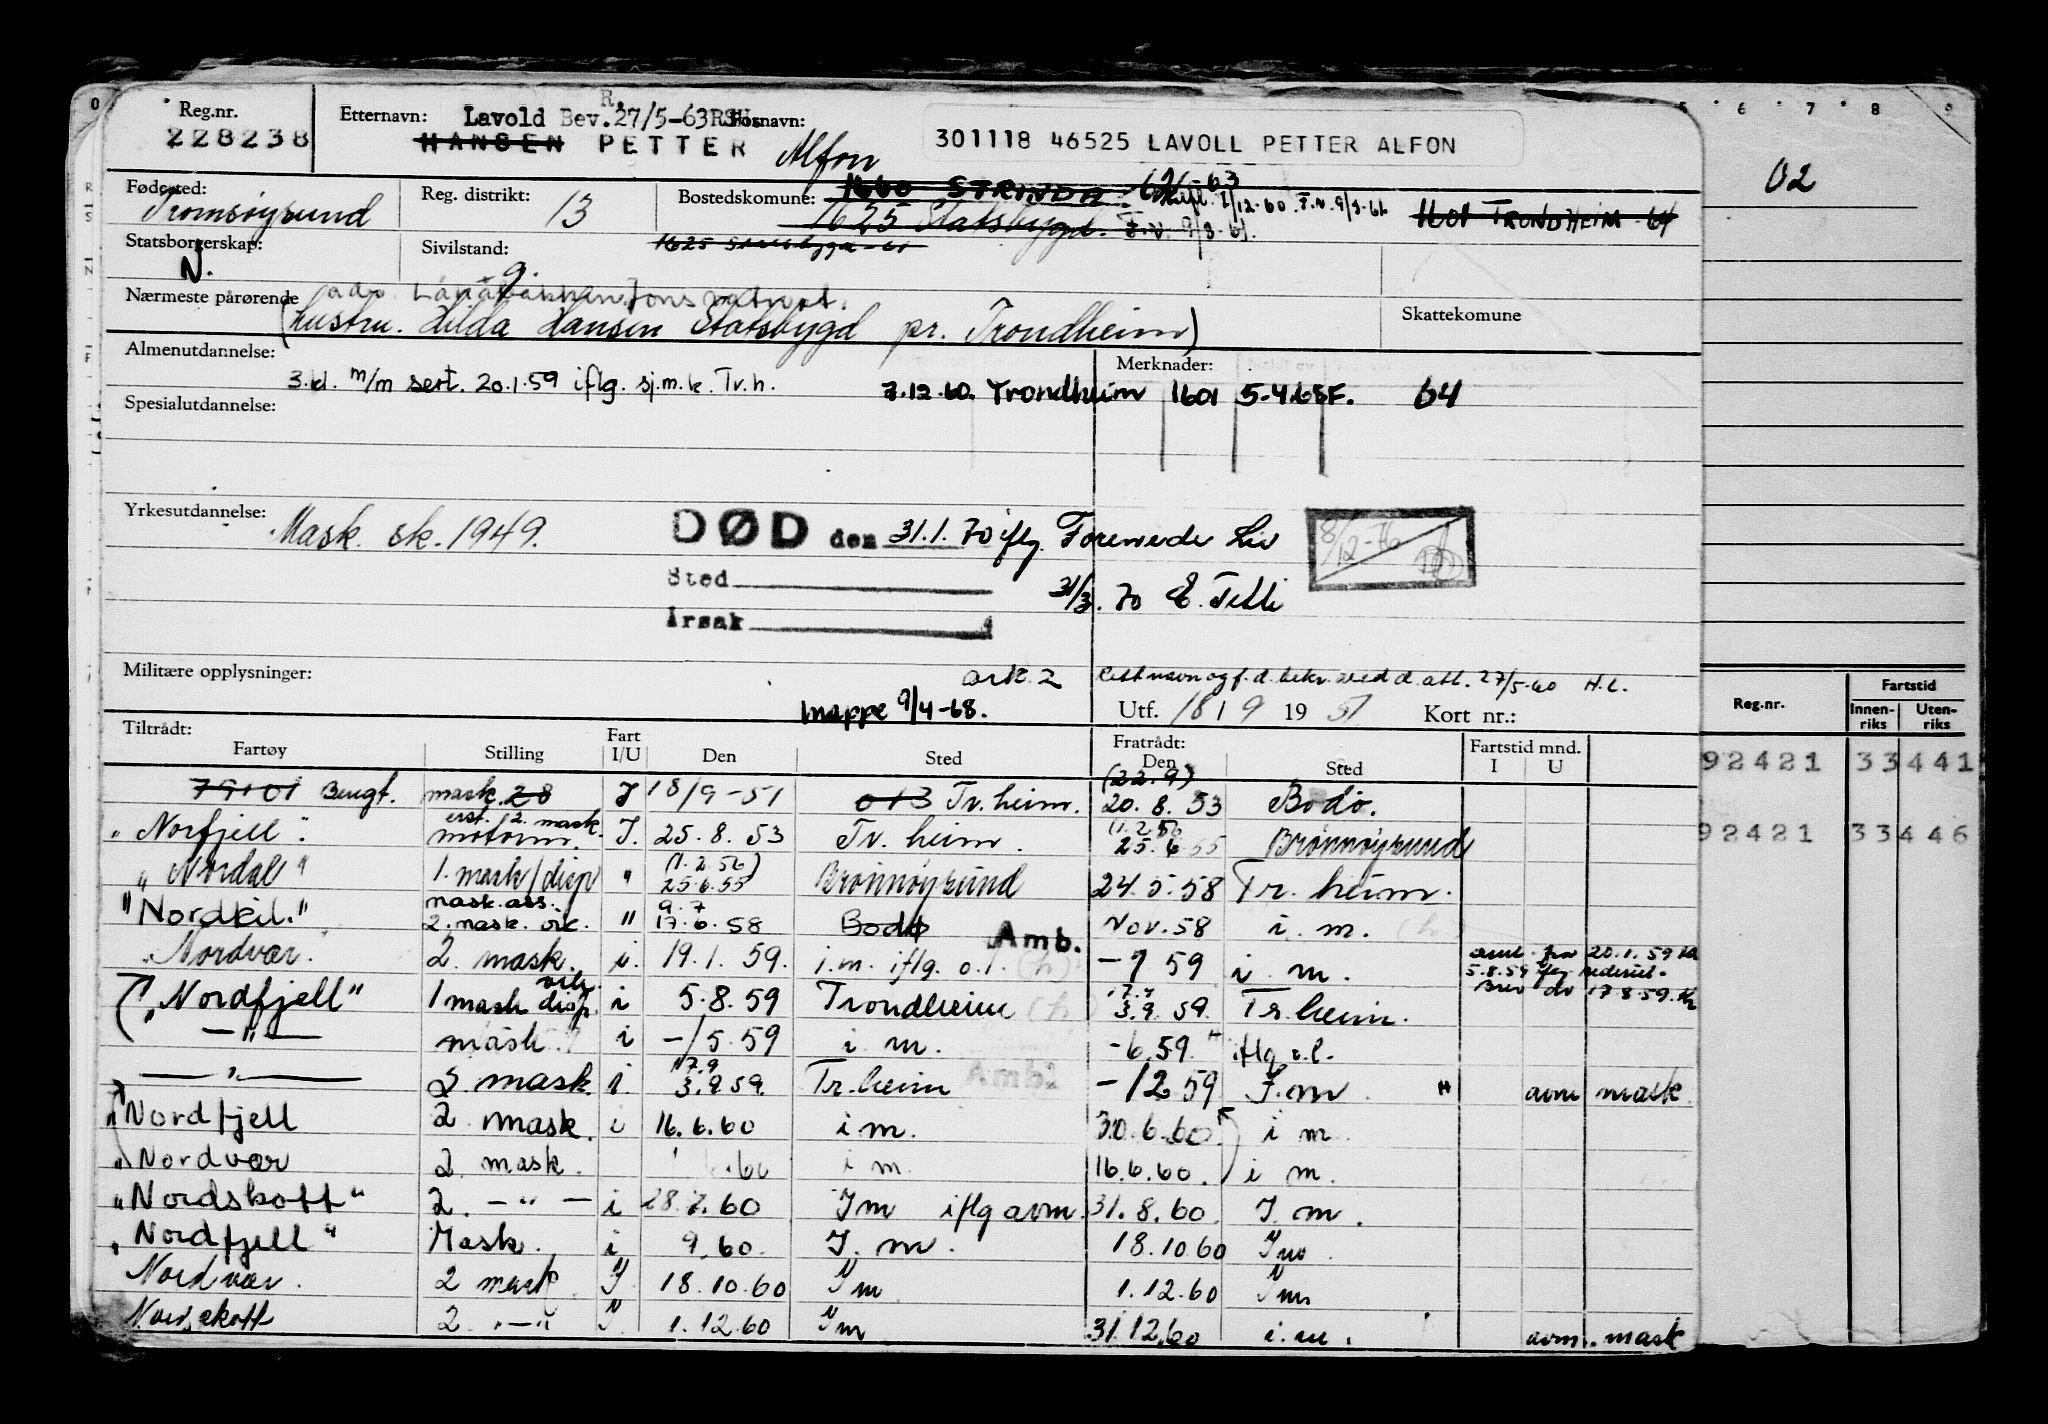 Reg.nr. 228238
Etternavn: Lavold Bev. 27/5-63 Fornavn:
HANSEN PETTER Alfon
301118 46525 LAVOLL PETTER ALFON
Fødested: Tromsøysund
Reg. distrikt: 13
Bostedskomune: 1660 STRINDA 62-63
1625 Statsbygd. F.v. 9/3-61.
1601 TRONDHEIM 64
02
Statsborgerskap: N.
Sivilstand: g
1625 Statsbygd-61
Nærmeste pårørende
(hustru. Hilda Hansen Statsbygd pr. Trondheim)
Skattekomune
Almenutdannelse:
3.kl. m/m sert. 20.1.59 iflg. sj.m.k. Tr.h.
Merknader:
7.12.60. Trondheim 1601 5.4.65F. 64
Spesialutdannelse:
Yrkesutdannelse: Mask. sk. 1949.
DØD den 31.1.70 iflg. Forenede Liv
Sted
31/3.70
Årsak
Militære opplysninger: ark. 2
Mappe 9/4-68.
Utf. 18 / 9 19 51 Kort nr.:
27/5-60 H.L.
Tiltrådt:
Fartøy Stilling Fart I/U Den Sted
Fratrådt:
Den Sted
Fartstid mnd.
I U
Reg.nr. Fartstid
Innen-riks Uten-riks
92421 33441
92421 33446
79101 Bengt. mask. 28 I 18/9-51 013 Tr.heim. (22.9) 20.8.53 Bodø.
"Norfjell". erst. 2. mask. motorm. I. 25.8.53 Tr. heim. (1.2.56 25.6.55 Brønnøysund
"Nordal" 1. mask/disp " (1.2.56) 25.6.55 Brønnøysund 24.5.58 Tr. heim.
"Nordkil." mask.ass. 2. mask. vik. " 9.7 17.6.58 Bodø Nov.58 i. m.
"Nordvær". 2. mask. i. 19.1.59. i.m. iflg. o.l. (h) Amb. -7 59 i. m.
20.1.59
5.8.59 iflg. rederiets
Brev dv 17.8.59.
"Nordfjell" 1 mask disp. vik. i 5.8.59 Trondheim (h) 17.9 3.9.59. Tr.heim.
— " — mask. i -/5.59 i. m. -6.59. " iflg o.l.
— " — 2 mask. i. 17.9 3.9.59. Tr.heim Amb2 -12 59 I.m. " avm mask.
"Nordfjell 2 mask. i 16.6.60 i m. 30.6.60. i m.
"Nordvær 2 mask. .60 i m. 16.6.60. i m.
"Nordskott" 2. — " — i 28.7.60 I m iflg avm. 31.8.60. I. m.
"Nordfjell" Mask. i 9.60. I. m. 18.10.60 I m.
Nordvær. 2 mask. I 18.10.60 I m 1.12.60 I m
Nordskott 2. — " — I. 1.12.60 I m 31.12.60 i.m. avm. mask